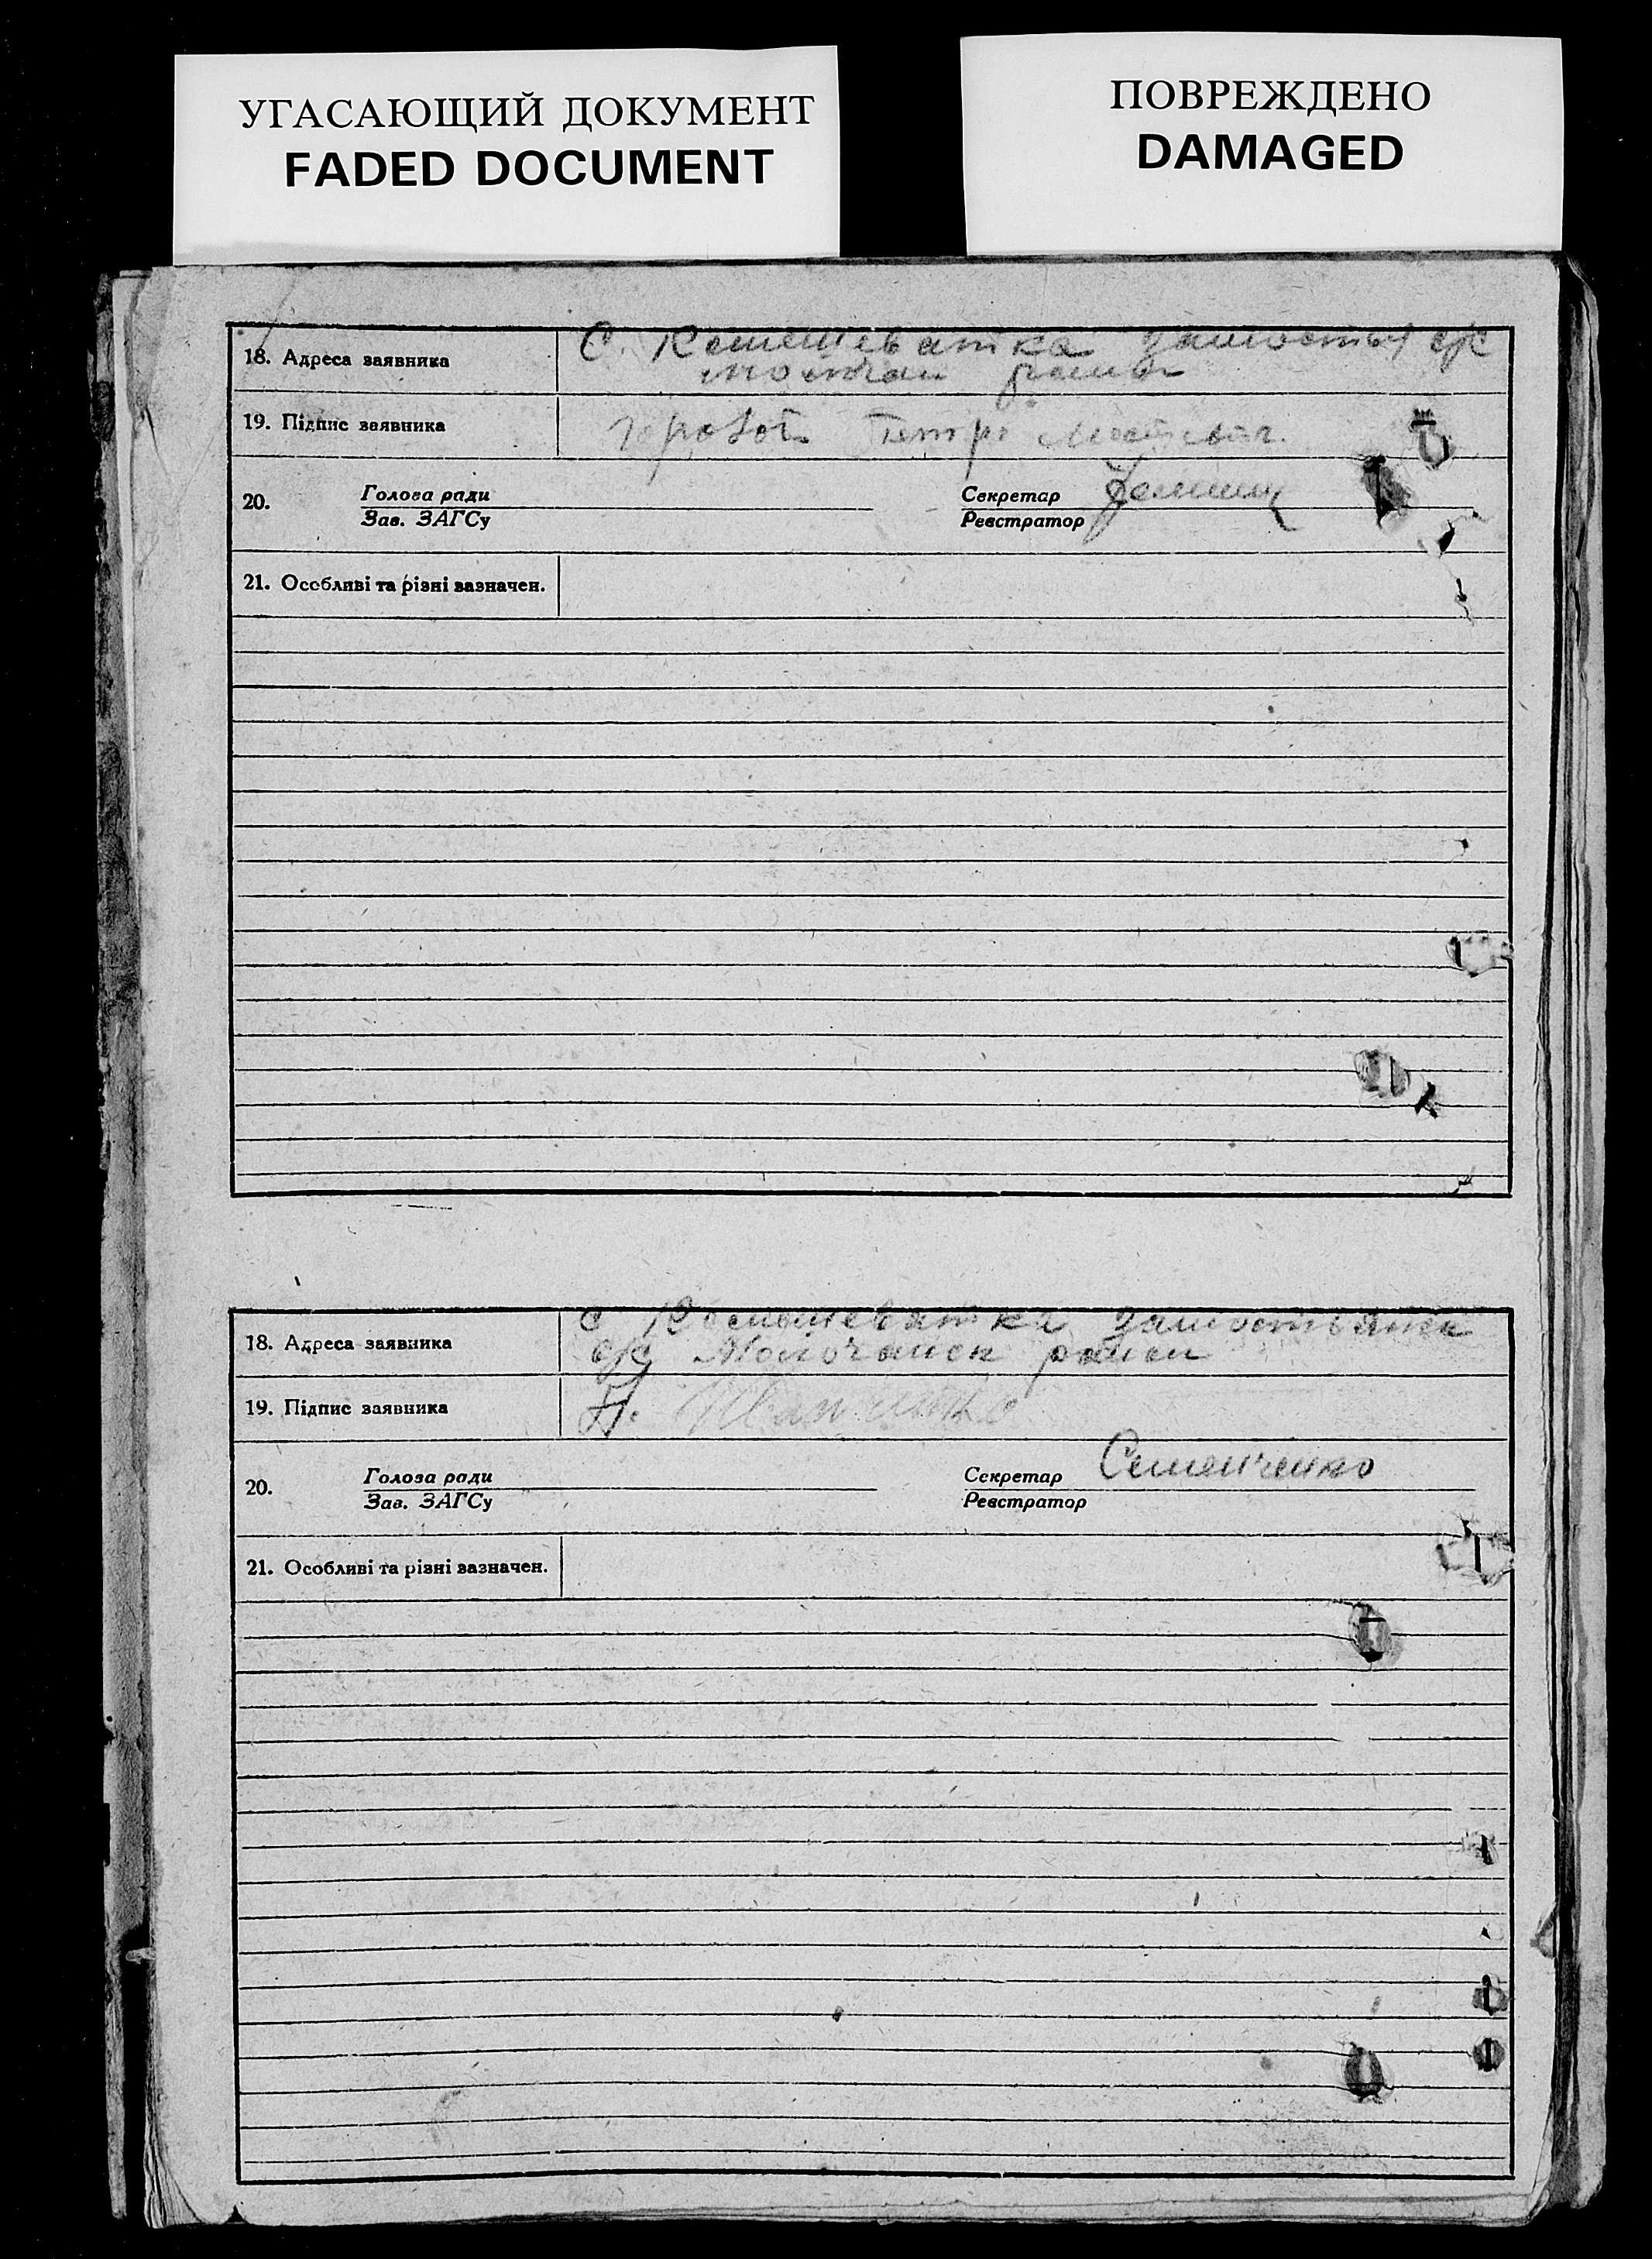 УГАСАЮЩИЙ ДОКУМЕНТ
FADED DOCUMENT
ПОВРЕЖДЕНО
DAMAGED
18. Адреса заявника
С. с/с
19. Підпис заявника
Петро
20.
Голова ради
Зав. ЗАГСу
Секретар
Реєстратор
21. Особливі та різні зазначен.
18. Адреса заявника
с
с/с Молочанск район
19. Підпис заявника
П. Иванченко
20.
Голова ради
Зав. ЗАГСу
Секретар Семенченко
Реєстратор
21. Особливі та різні зазначен.